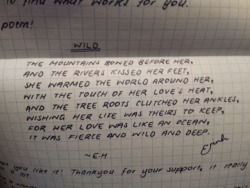 to find what works for you.
poem!
WILD
THE MOUNTAINS BOWED BEFORE HER,
AND THE RIVERS KISSED HER FEET,
SHE WARMED THE WORLD AROUND HER,
WITH THE TOUCH OF HER LOVE & HEAT,
AND THE TREE ROOTS CLUTCHED HER ANKLES,
WISHING HER LIFE WAS THEIRS TO KEEP,
FOR HER LOVE WAS LIKE AN OCEAN,
IT WAS FIERCE AND WILD AND DEEP.
~E.H
you like it! Thankyou for your support, it really